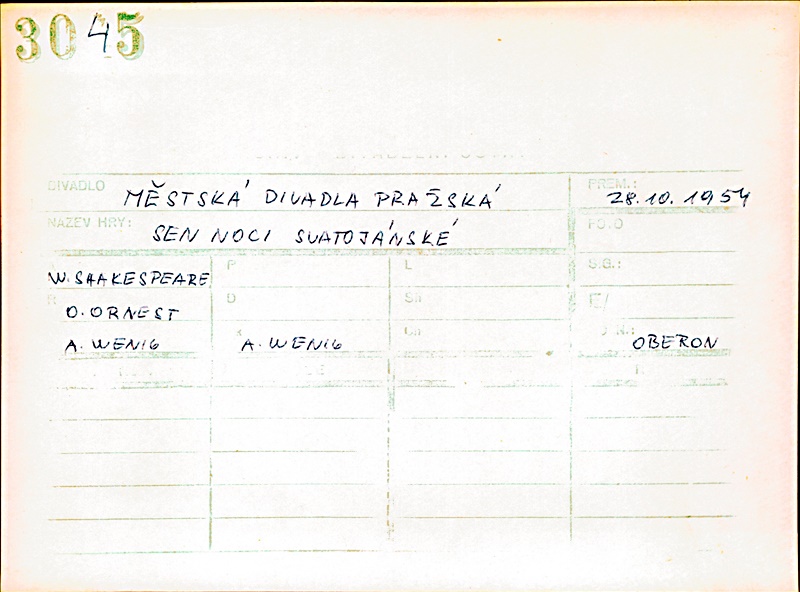 3045
DIVADLO MĚSTSKÁ DIVADLA PRAŽSKÁ PREM.: 28.10.1954
NÁZEV HRY: SEN NOCI SVATOJÁNSKÉ
W. SHAKESPEARE P L S.G.:
R O. ORNEST D
A. WENIG A. WENIG OBERON